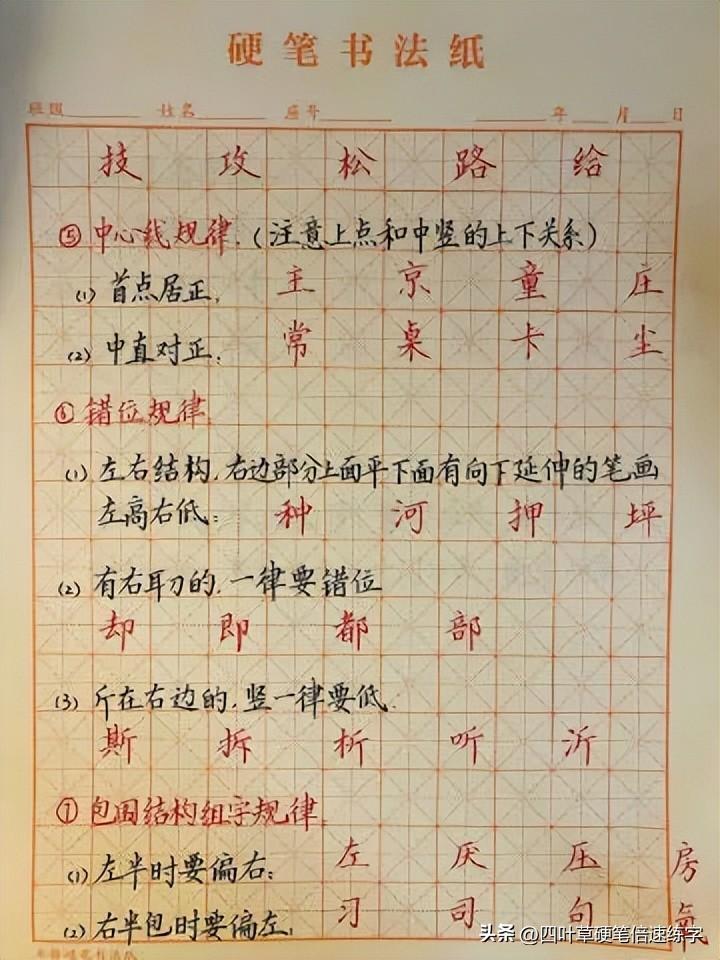 硬笔书法纸
班级 姓名 座号 年 月 日
技 攻 松 路 给
⑤ 中心线规律.(注意上点和中竖的上下关系)
(1) 首点居正. 主 京 童 庄
(2) 中直对正: 常 桌 卡 尘
⑥ 错位规律
(1) 左右结构.右边部分上面平下面有向下延伸的笔画
左高右低: 种 河 押 坪
(2) 有右耳刀的.一律要错位
却 即 都 部
(3) 斤在右边的.竖一律要低.
斯 拆 析 听 沂
⑦ 包围结构组字规律.
(1) 左半时要偏右: 左 厌 压 房
(2) 右半包时要偏左: 习 司 句 氧
头条 @四叶草硬笔倍速练字